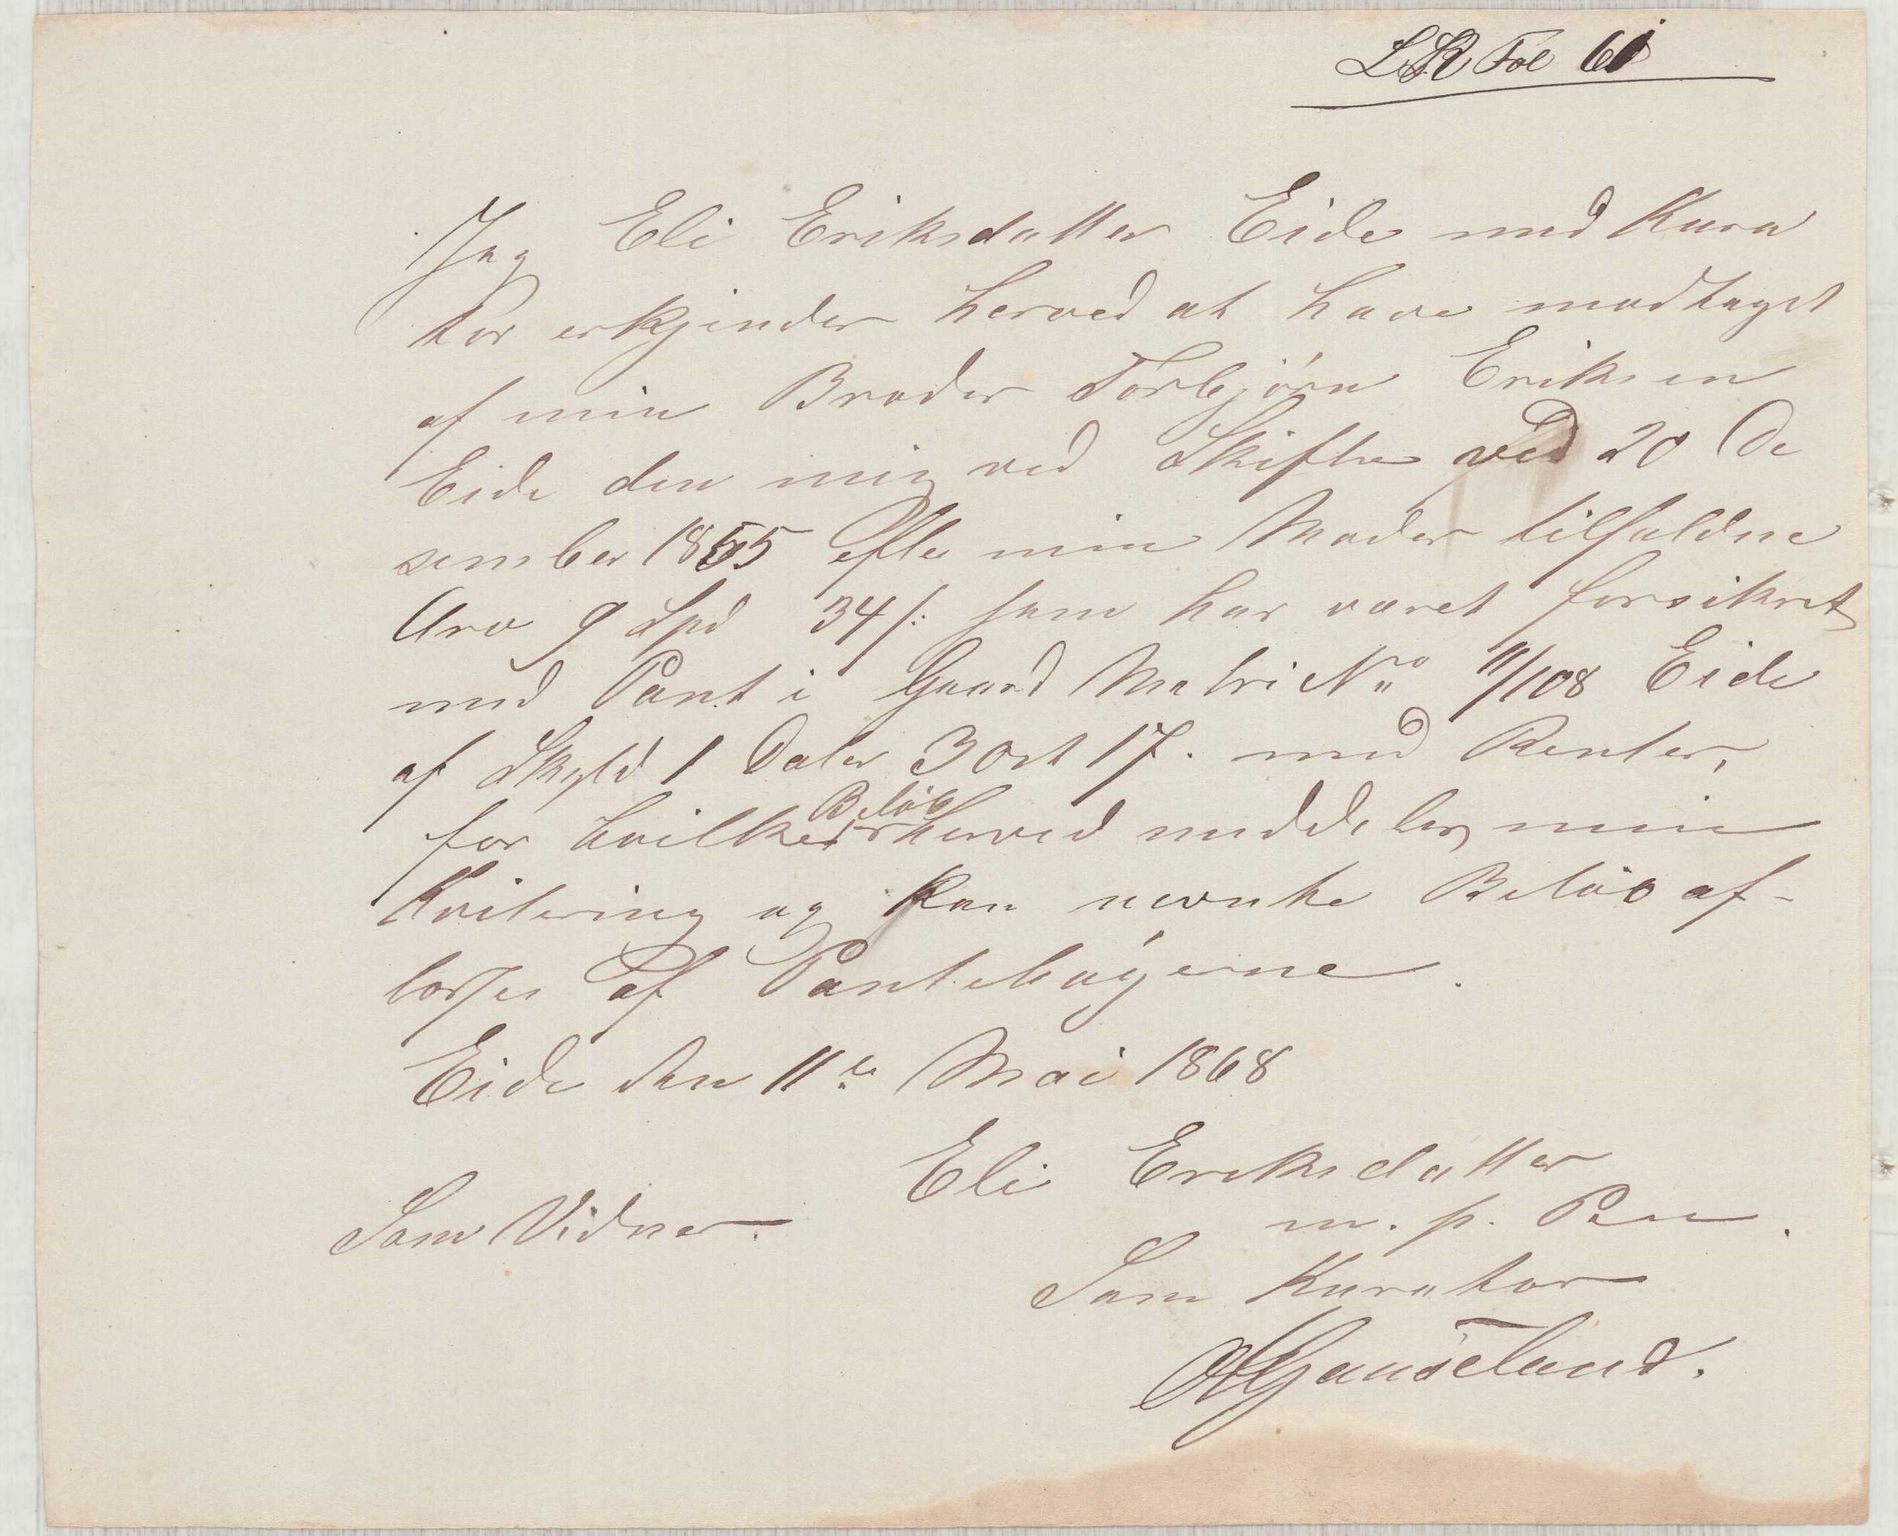 L.R Fol 61
Jeg Eli Eriksdatter Eide med Kura
tor erkjender herved at have modtaget
af min Broder Torbjørn Eriksen
Eide den mig ved Skifte ved 20 De
sember 1855 efter min Moder tilfaldne
Arv 9 Spd 34 /: som har været forsikret
med Pant i Gaard Matr No 11/108 Eide
af Skyld 1 Daler 3 Ort 17. med Renter,
for hvilket Beløb herved meddeles min
Kvitering og kan nevnte Beløb af-
losses af Pantebøgerne.
Eide den 11te Mai 1868
Eli Eriksdatter
m. p. Pen.
Som Vidner.
Som Kurator